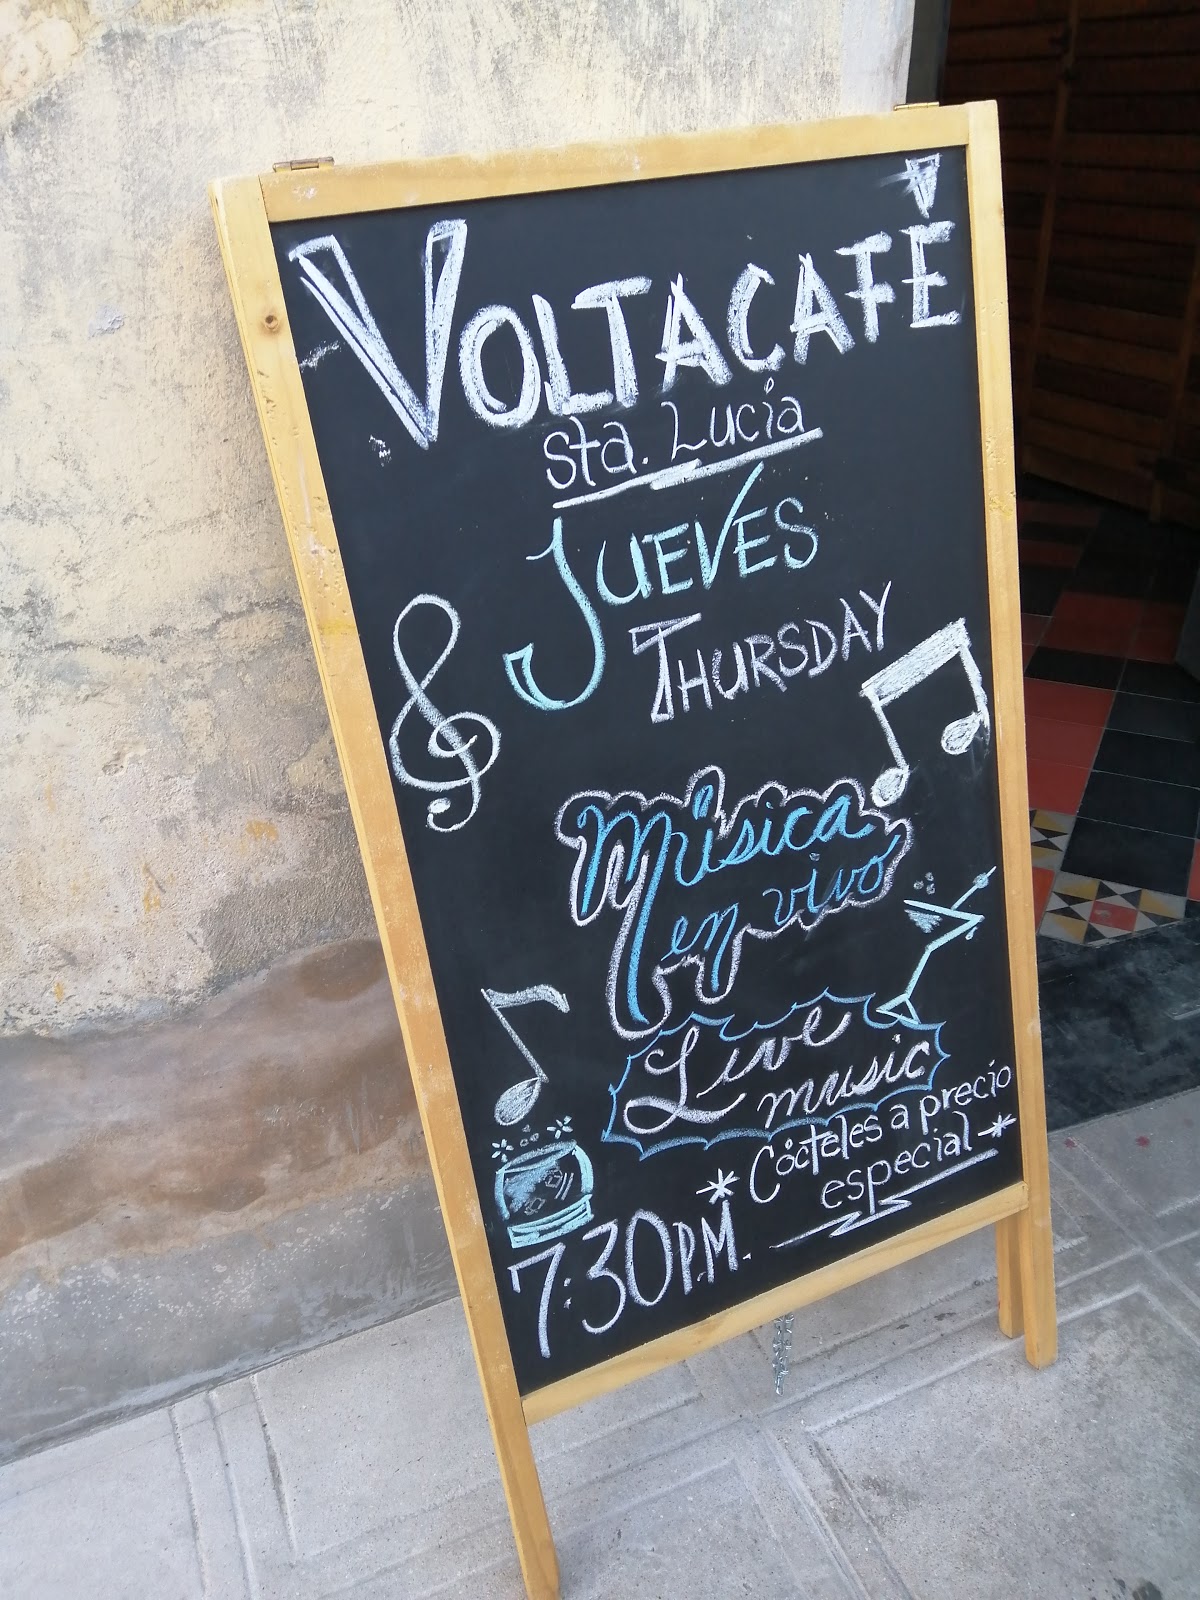 VOLTACAFÉ
Sta. Lucia
JUEVES
THURSDAY
Música
en vivo
Live
music
* Cócteles a precio
especial *
7:30 P.M.